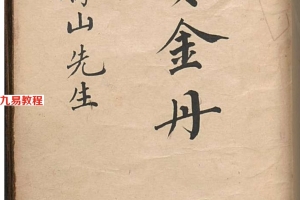 金丹
山先生
九易教程